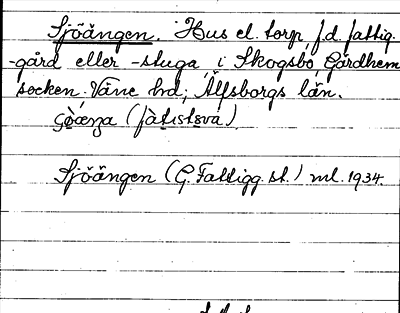 Sjöängen. Hus el. torp, f.d. fattig-
-gård eller -stuga, i Skogsbo, Gärdhem
socken. Väne hd, Älfsborgs län.
Sjöängen (G. Fattigg. st.) ml. 1934.